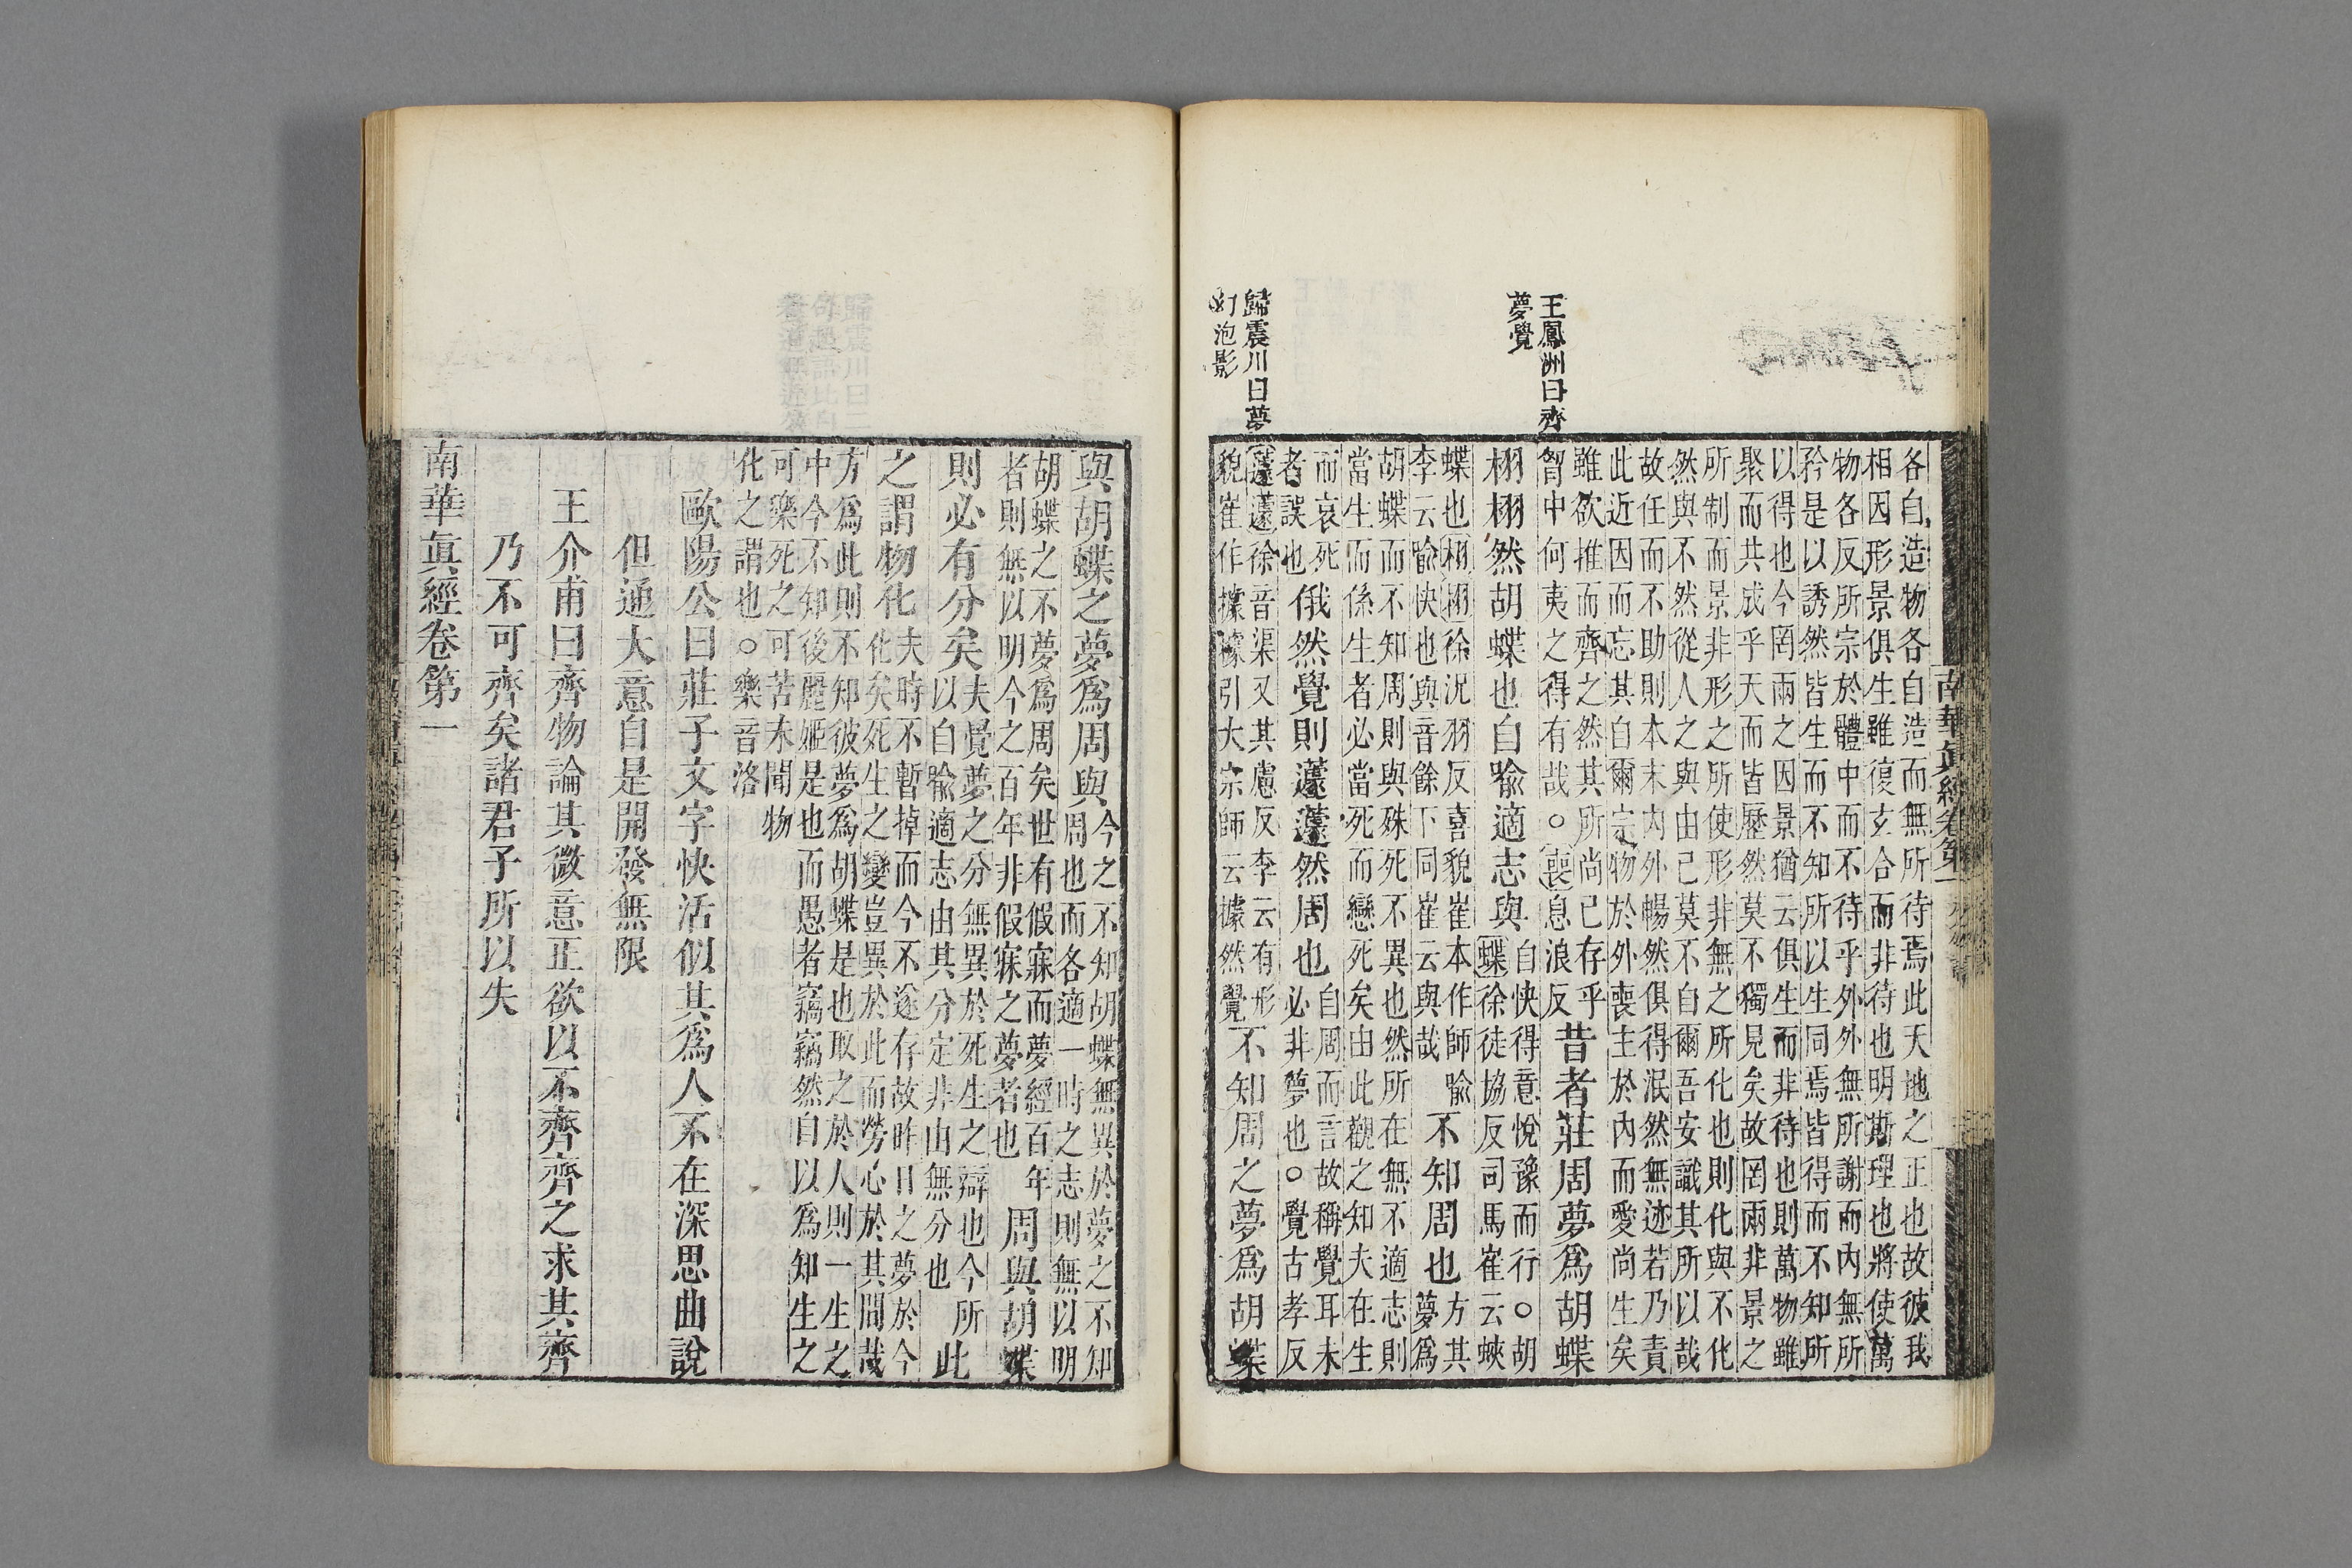 南華眞經卷第一
各自造物各自造而無所待焉此天地之正也故彼我
相因形景俱生雖復玄合而非待也明斯理也將使萬
物各反所宗於體中而不待乎外外無所謝而內無所
矜是以誘然皆生而不知所以生同焉皆得而不知所
以得也今罔兩之因景猶云俱生而非待也則萬物雖
聚而共成乎天而皆歷然莫不獨見矣故罔兩非景之
所制而景非形之所使形非無之所化也則化與不化
然與不然從人之與由己莫不自爾吾安識其所以哉
故任而不助則本末內外暢然俱得泯然無迹若乃責
此近因而忘其自爾宗物於外喪主於內而愛尚生矣
王鳳洲曰齊
夢覺
雖欲推而齊之然其所尚已存乎
胷中何夷之得有哉○喪息浪反
昔者莊周夢爲胡蝶
栩栩然胡蝶也自喻適志與
自快得意悅豫而行○胡
蝶徐徒協反司馬崔云蛺
蝶也栩栩徐況羽反喜貌崔本作師喻
李云喻快也與音餘下同崔云與哉
不知周也
方其
夢爲
胡蝶而不知周則與殊死不異也然所在無不適志則
當生而係生者必當死而戀死矣由此觀之知夫在生
而哀死
者誤也
俄然覺則蘧蘧然周也
自周而言故稱覺耳未
必非夢也○覺古孝反
歸震川曰夢
幻泡影
蘧蘧徐音渠又其慮反李云有形
貌崔作據據引大宗師云據然覺
不知周之夢爲胡蝶
與胡蝶之夢爲周與
今之不知胡蝶無異於夢之不知
周也而各適一時之志則無以明
胡蝶之不夢爲周矣世有假寐而夢經百年
者則無以明今之百年非假寐之夢者也
周與胡蝶
則必有分矣
夫覺夢之分無異於死生之辯也今所
以自喻適志由其分定非由無分也
此
之謂物化
夫時不暫掉而今不遂存故昨日之夢於今
化矣死生之變豈異於此而勞心於其間哉
方爲此則不知彼夢爲胡蝶是也取之於人則一生之
中今不知後麗姬是也而愚者竊竊然自以爲知生之
可樂死之可苦未聞物
化之謂也○樂音洛
歐陽公曰莊子文字快活似其爲人不在深思曲說
但通大意自是開發無限
王介甫曰齊物論其微意正欲以不齊齊之求其齊
乃不可齊矣諸君子所以失
南華眞經卷第一